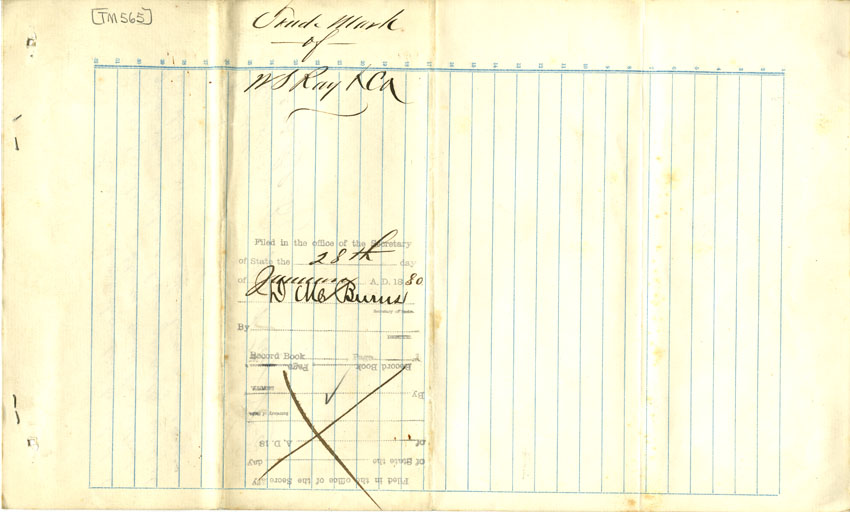 [TM565]
Trade Mark
of
W S Ray & Co
Filed in the office of the Secretary
of State the 28th day
of January A. D. 1880
D M Burns
Secretary of State.
By
Record Book Page
Record Book Page
By
Secretary of State
of A. D. 18
of State the day
Filed in the office of the Secretary